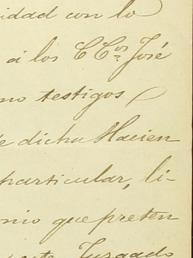 idad con lo
á los CC.os José
mo testigos
e dicha Hacien
particular, li-
nio que preten
Juzgado